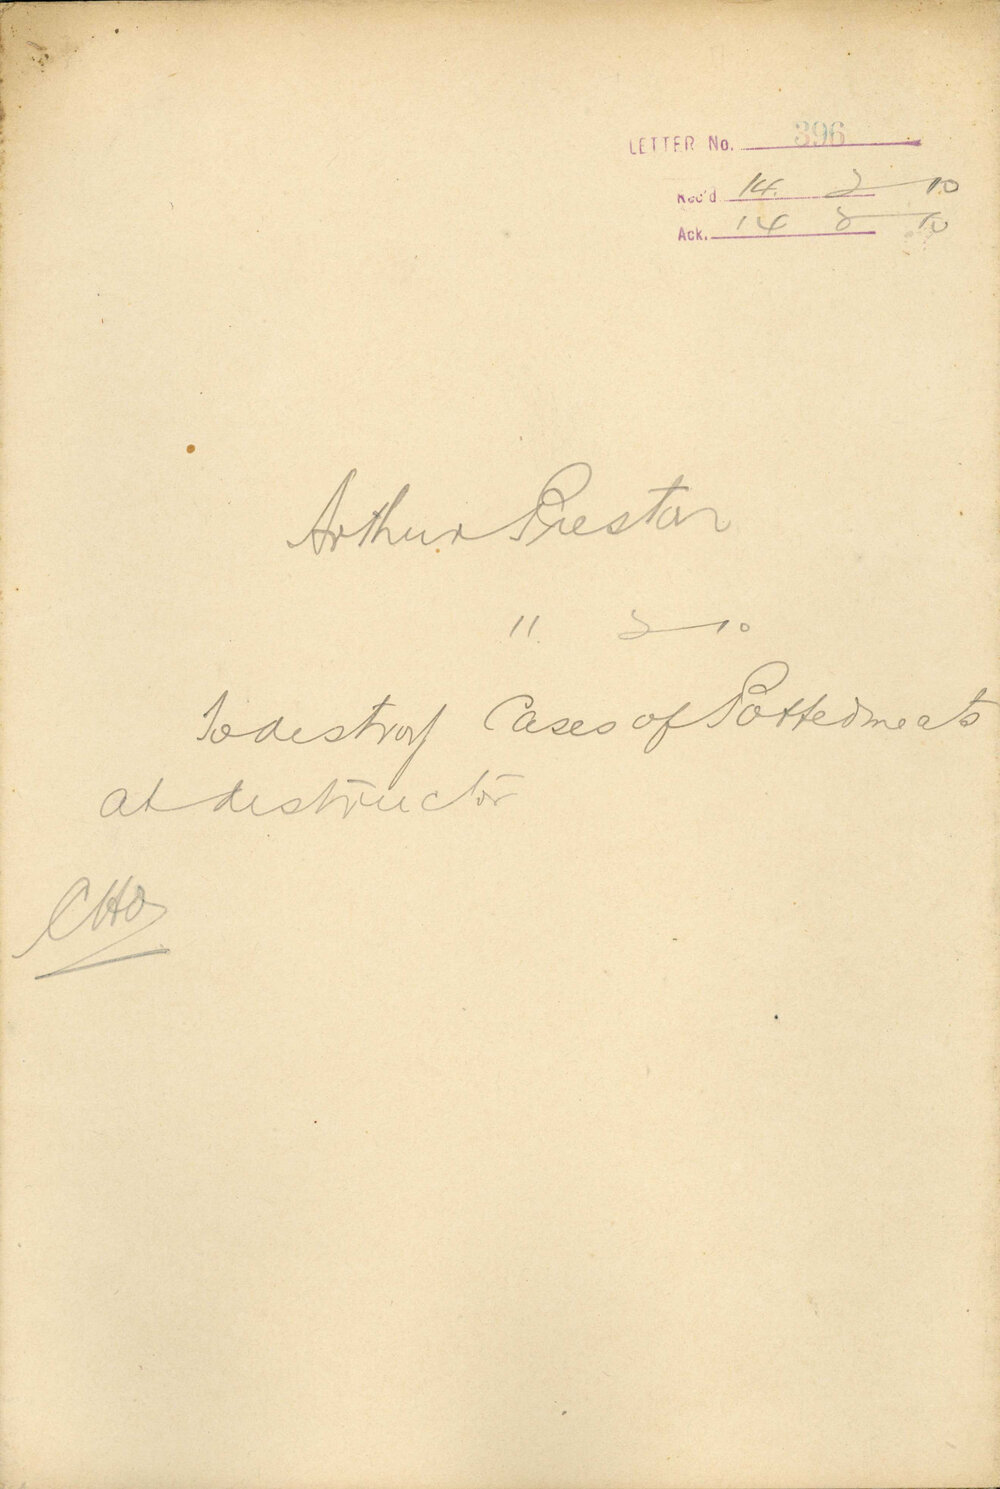 LETTER No. 396
Rec'd 14. 2 10
Ack. 14 2 10
Arthur Preston
11. 2 10
To destroy Cases of Potted meats
at destructor
CHO